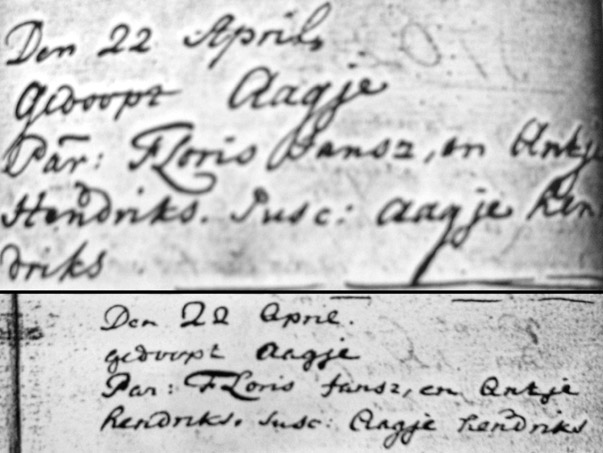 Den 22 April,
Gedoopt Aagje
Par: Floris Jansz, en Antje
Hendriks. Susc: Aagje Hen
driks
Den 22 April.
gedoopt Aagje
Par: Floris Jansz, en Antje
hendriks. Susc: Aagje hendriks